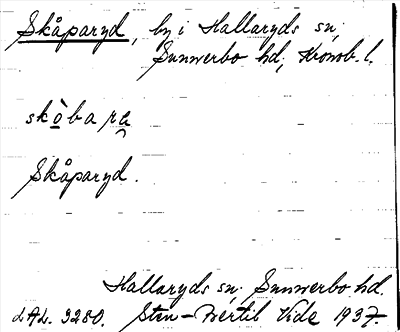 Skåparyd, by i Hallaryds sn,
Sunnerbo hd, Kronob. l.
skò̱bara̯
Skåparyd.
Hallaryds sn, Sunnerbo hd.
LAL. 3280. Sten-Bertil Vide 1937